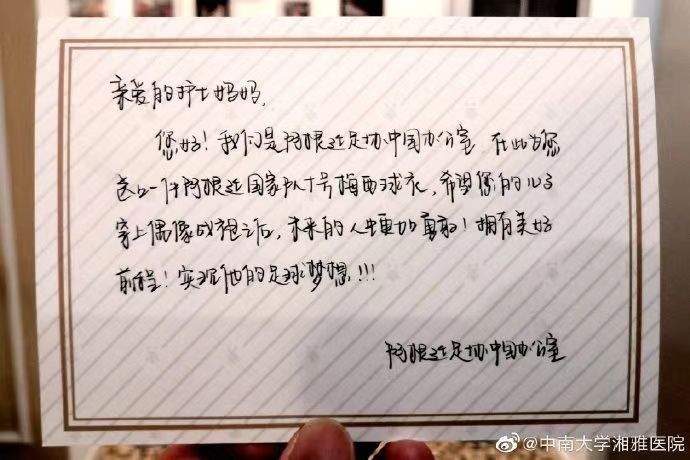 亲爱的护士妈妈，
您好！我们是阿根廷足协中国办公室 在此为您
送上一件阿根廷国家队十号梅西球衣，希望您的儿子
穿上偶像战袍之后，未来的人生更加勇敢！拥有美好
前程！实现他的足球梦想!!!
阿根廷足协中国办公室
@中南大学湘雅医院